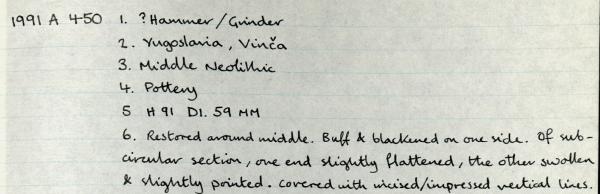 1991 A 450 1. ? Hammer / Grinder
2. Yugoslavia, Vinča
3. Middle Neolithic
4. Pottery
5 H 91 D1. 59 MM
6. Restored around middle. Buff & blackened on one side. Of sub-
circular section, one end slightly flattened, the other swollen
& slightly pointed. Covered with incised/impressed vertical lines.